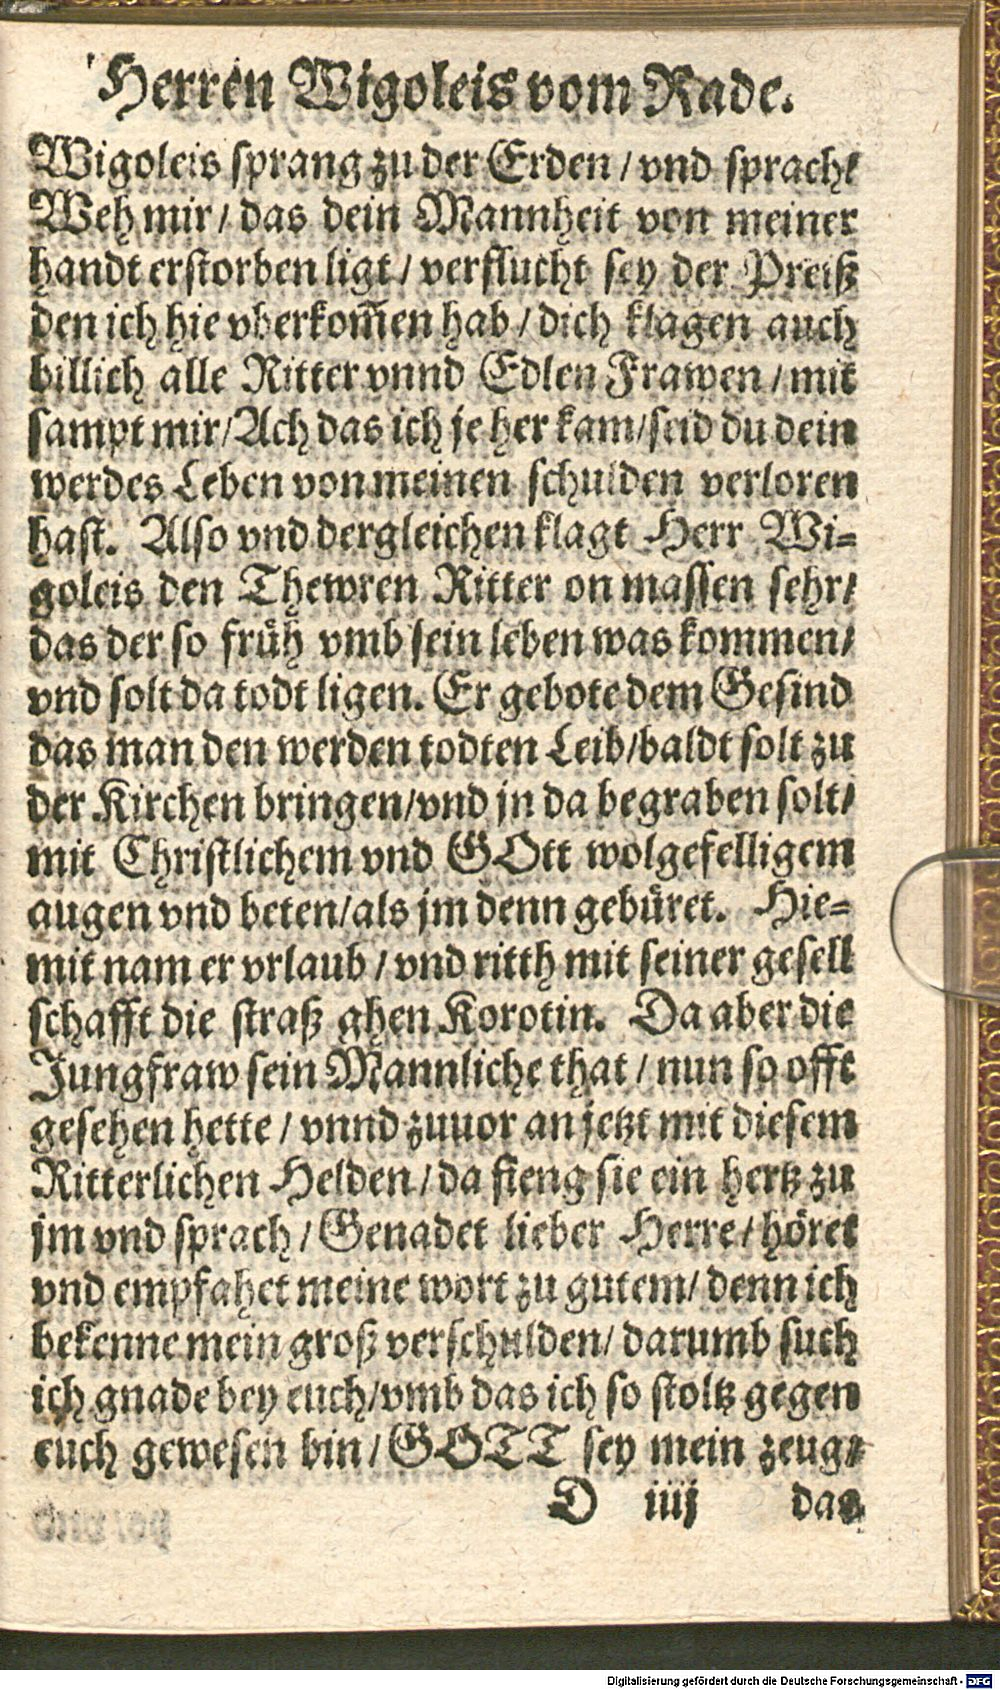 Herren Wigoleis vom Rade.
Wigoleis sprang zu der Erden / vnd sprach/
Weh mir / das dein Mannheit von meiner
handt erstorben ligt / verflucht sey der Preiß
den ich hie vberkom̃en hab / dich klagen auch
billich alle Ritter vnnd Edlen Frawen / mit
sampt mir/Ach das ich je her kam/seid du dein
werdes Leben von meinen schulden verloren
hast. Also vnd dergleichen klagt Herr Wi=
goleis den Thewren Ritter on massen sehr/
das der so früh vmb sein leben was kommen/
vnd solt da todt ligen. Er gebote dem Gesind
das man den werden todten Leib/baldt solt zu
der Kirchen bringen/vnd jn da begraben solt/
mit Christlichem vnd GOtt wolgefelligem
augen vnd beten/als jm denn gebüret. Hie=
mit nam er vrlaub / vnd ritth mit seiner gesell
schafft die straß ghen Korotin. Da aber die
Jungfraw sein Mannliche that / nun so offt
gesehen hette / vnnd zuuor an jetzt mit diesem
Ritterlichen Helden / da fieng sie ein hertz zu
jm vnd sprach / Genadet lieber Herre / höret
vnd empfahet meine wort zu gutem/ denn ich
bekenne mein groß verschulden/ darumb such
ich gnade bey euch/vmb das ich so stoltz gegen
euch gewesen bin / GOTT sey mein zeug/
D iiij das
Digitalisierung gefördert durch die Deutsche Forschungsgemeinschaft - DFG